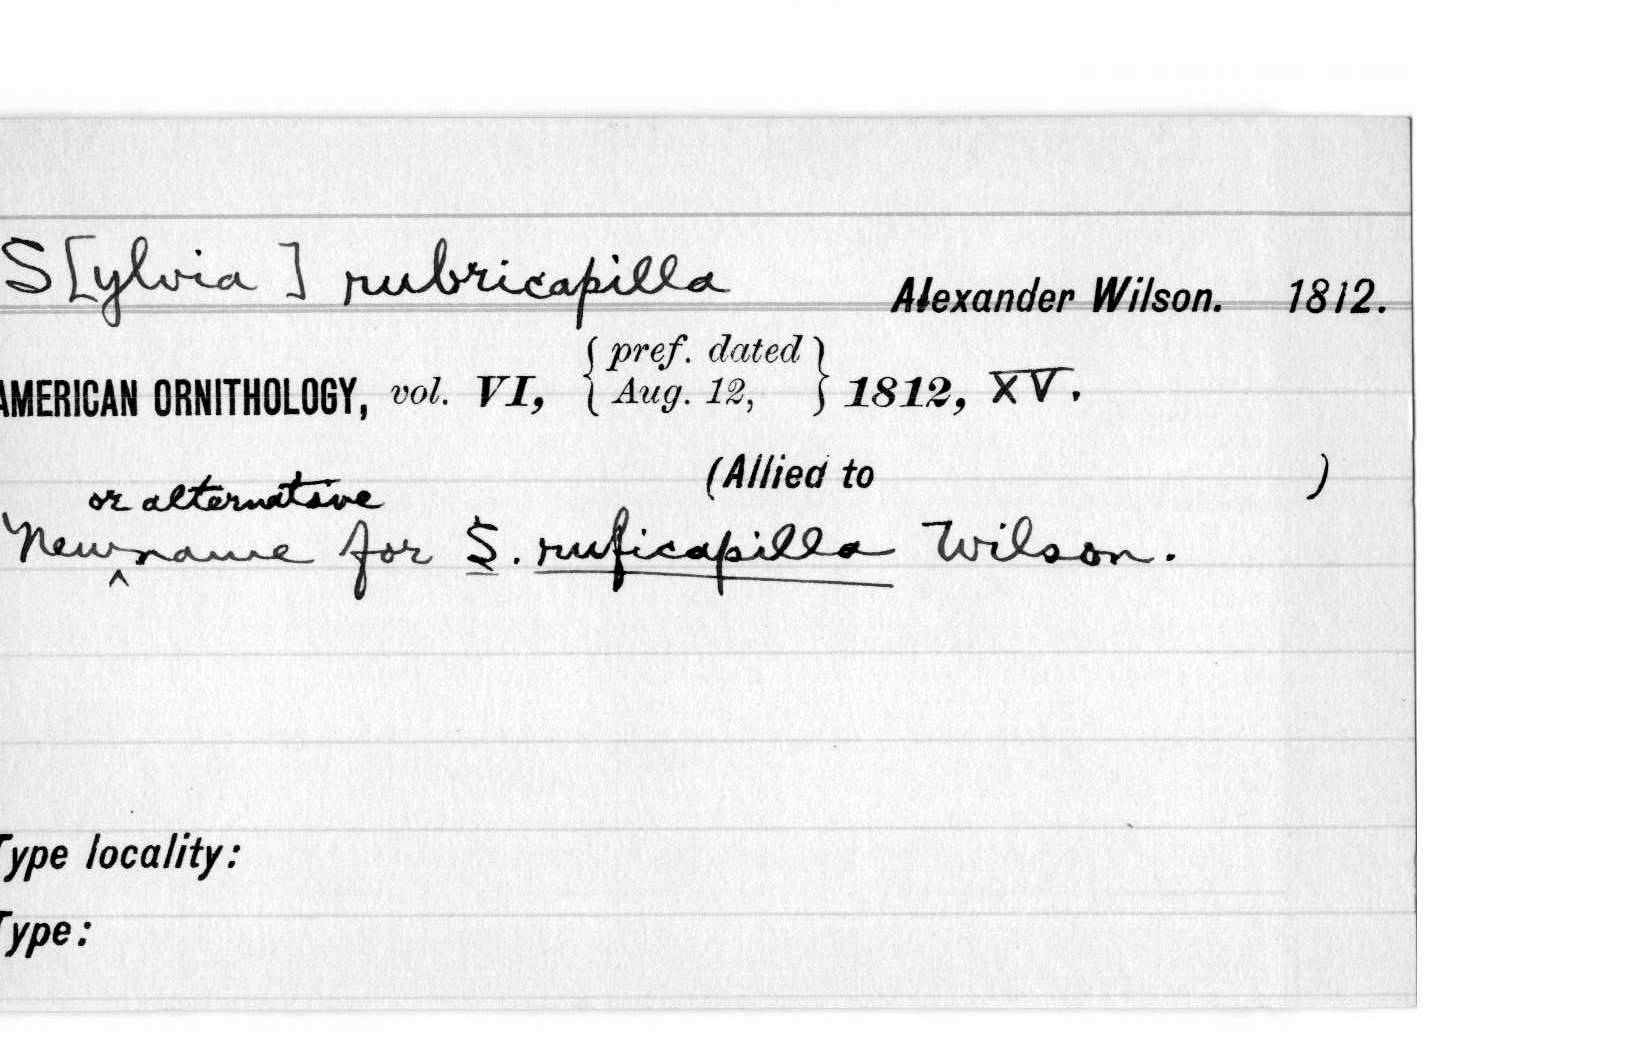 S[ylvia] rubricapilla Alexander Wilson. 1812.
AMERICAN ORNITHOLOGY, vol. VI, { pref. dated Aug. 12, } 1812, XV.
(Allied to )
or alternative
New ^ name for S. ruficapilla Wilson.
Type locality:
Type: